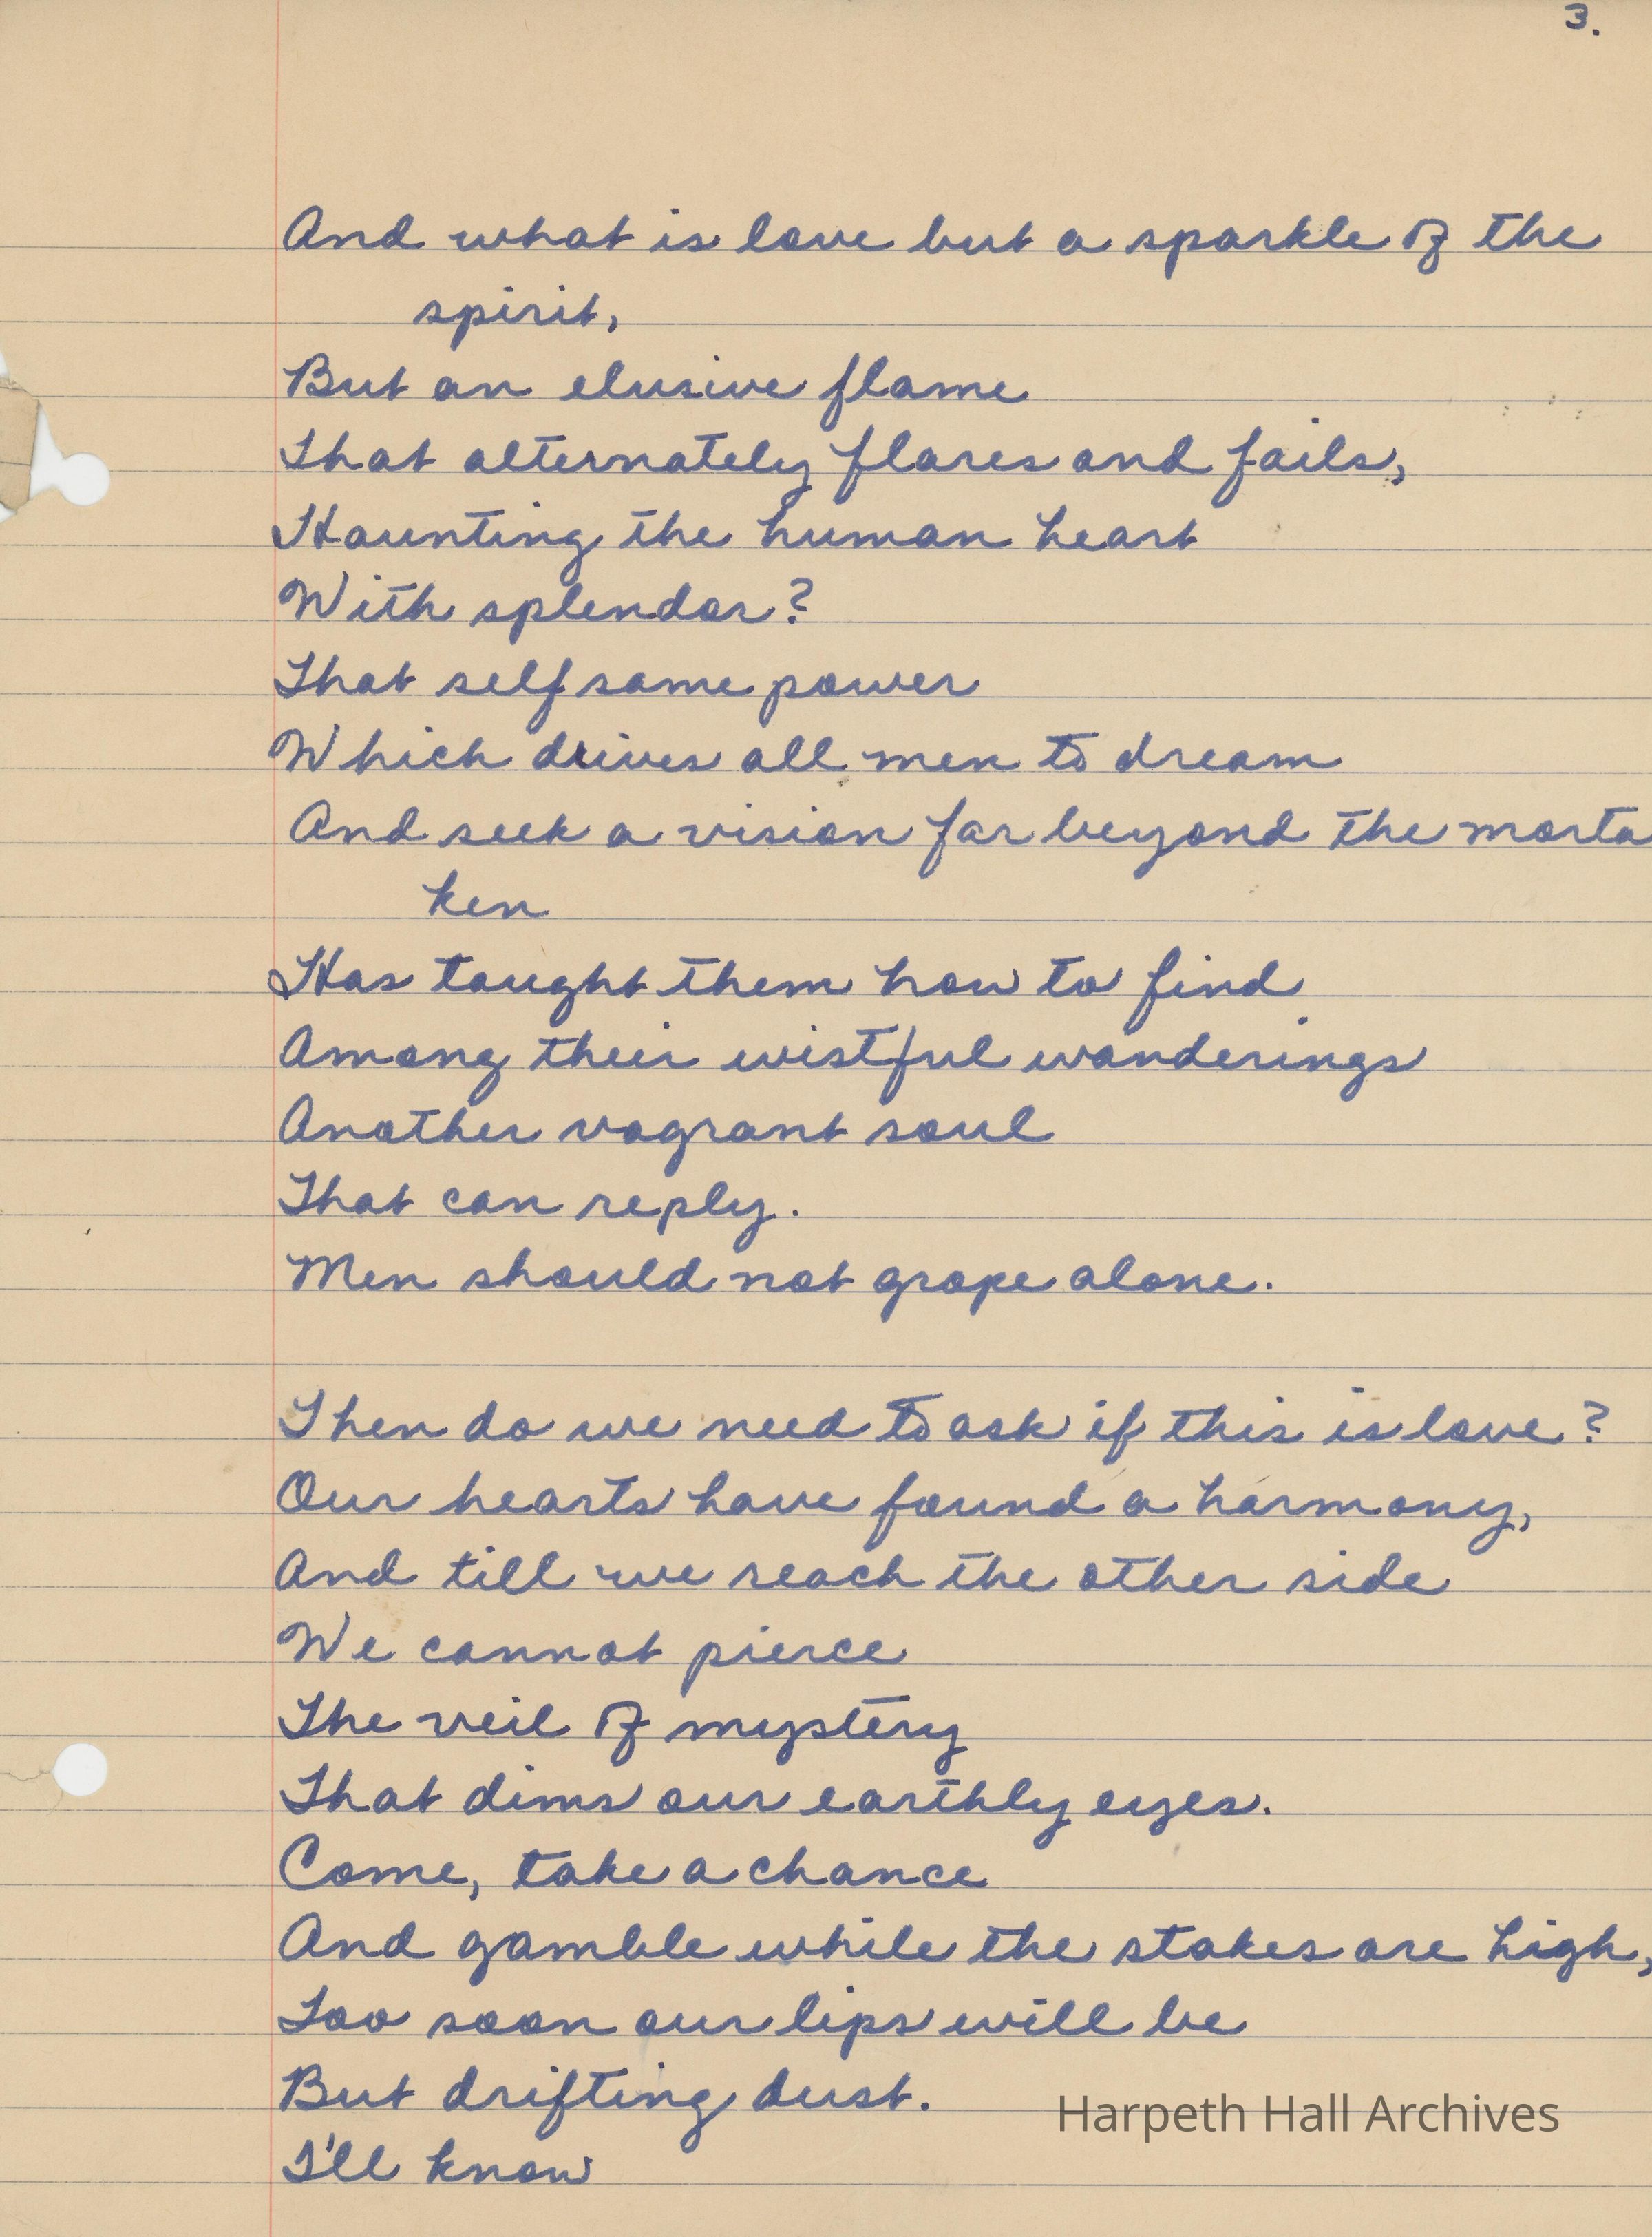 3.
And what is love but a sparkle of the
spirit,
But an elusive flame
That alternately flares and fails,
Haunting the human heart
With splendor?
That self same power
Which drives all men to dream
And seek a vision far beyond the morta
ken
Has taught them how to find
Among their wistful wanderings
Another vagrant soul
That can reply.
Men should not grope alone.
Then do we need to ask if this is love?
Our hearts have found a harmony,
And till we reach the other side
We cannot pierce
The veil of mystery
That dims our earthly eyes.
Come, take a chance
And gamble while the stakes are high,
Too soon our lips will be
But drifting dust.
Harpeth Hall Archives
I'll know